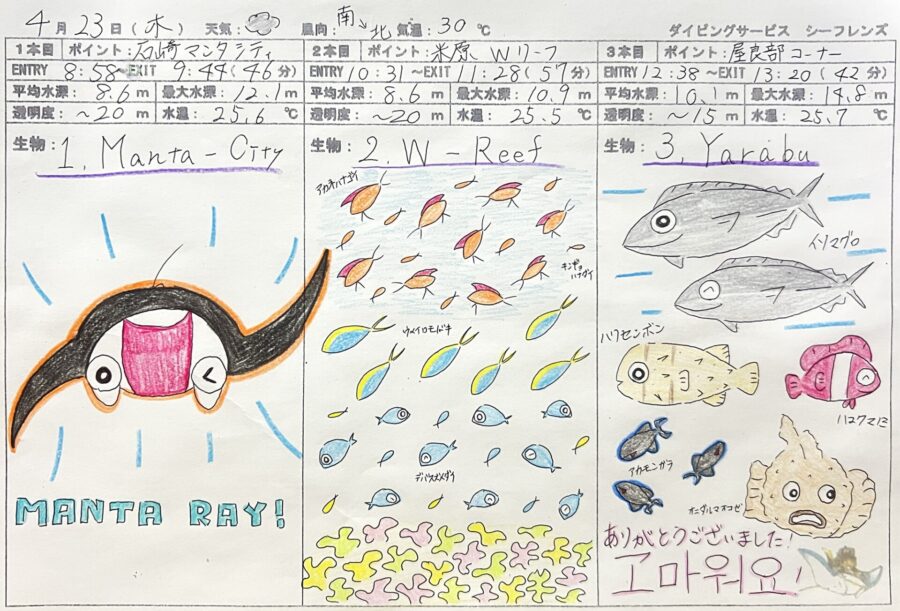 4月23日(木) 天気: 風向: 南→北 気温: 30 ℃ ダイビングサービス シーフレンズ
1本目 ポイント: 石崎マンタシティ
ENTRY 8:58~EXIT 9:44(46分)
平均水深: 8.6 m 最大水深: 12.1 m
透明度: ~20 m 水温: 25.6 ℃
生物: 1. Manta-City
MANTA RAY!
2本目 ポイント: 米原 Wリーフ
ENTRY 10:31~EXIT 11:28(57分)
平均水深: 8.6 m 最大水深: 10.9 m
透明度: ~20 m 水温: 25.5 ℃
生物: 2. W-Reef
アカネハナゴイ
キンギョハナダイ
ウメイロモドキ
デバスズメダイ
3本目 ポイント: 屋良部コーナー
ENTRY 12:38~EXIT 13:20(42分)
平均水深: 10.1 m 最大水深: 14.8 m
透明度: ~15 m 水温: 25.7 ℃
生物: 3. Yarabu
イソマグロ
ハリセンボン
ハマクマノミ
アカモンガラ
オニダルマオコゼ
ありがとうございました!
고마워요!